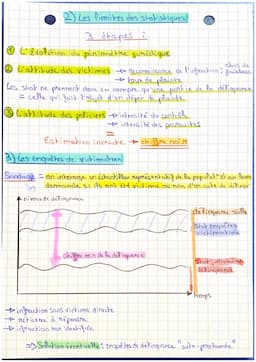 2) Les limites des statistiques
3 étapes :
① L'évolution du périmètre juridique
② L'attitude des victimes → reconnaissance de l'infraction :
→ taux de plainte
Les stat ne prennent donc en compte qu'une partie de la délinquance
= celle qui fait l'objet d'un dépôt de plainte.
③ L'attitude des policiers → intensité du contrôle
→ intensité des poursuites
=
Estimation incorrecte → chiffre noir
Les enquêtes de victimation
Sondage = on interroge un échantillon représentatif de la populat° et on leur
demande si ils ont été victime ou non d'un acte de délinq
niveau de délinquance
délinquance réelle
Stat enquêtes
victimation
chiffre noir de la délinquance
délinquance
temps
→ infraction sans victime directe
→ réticence à répondre
→ infraction non identifiée
⇒ Solution éventuelle : enquêtes de délinquance "auto-proclamée"